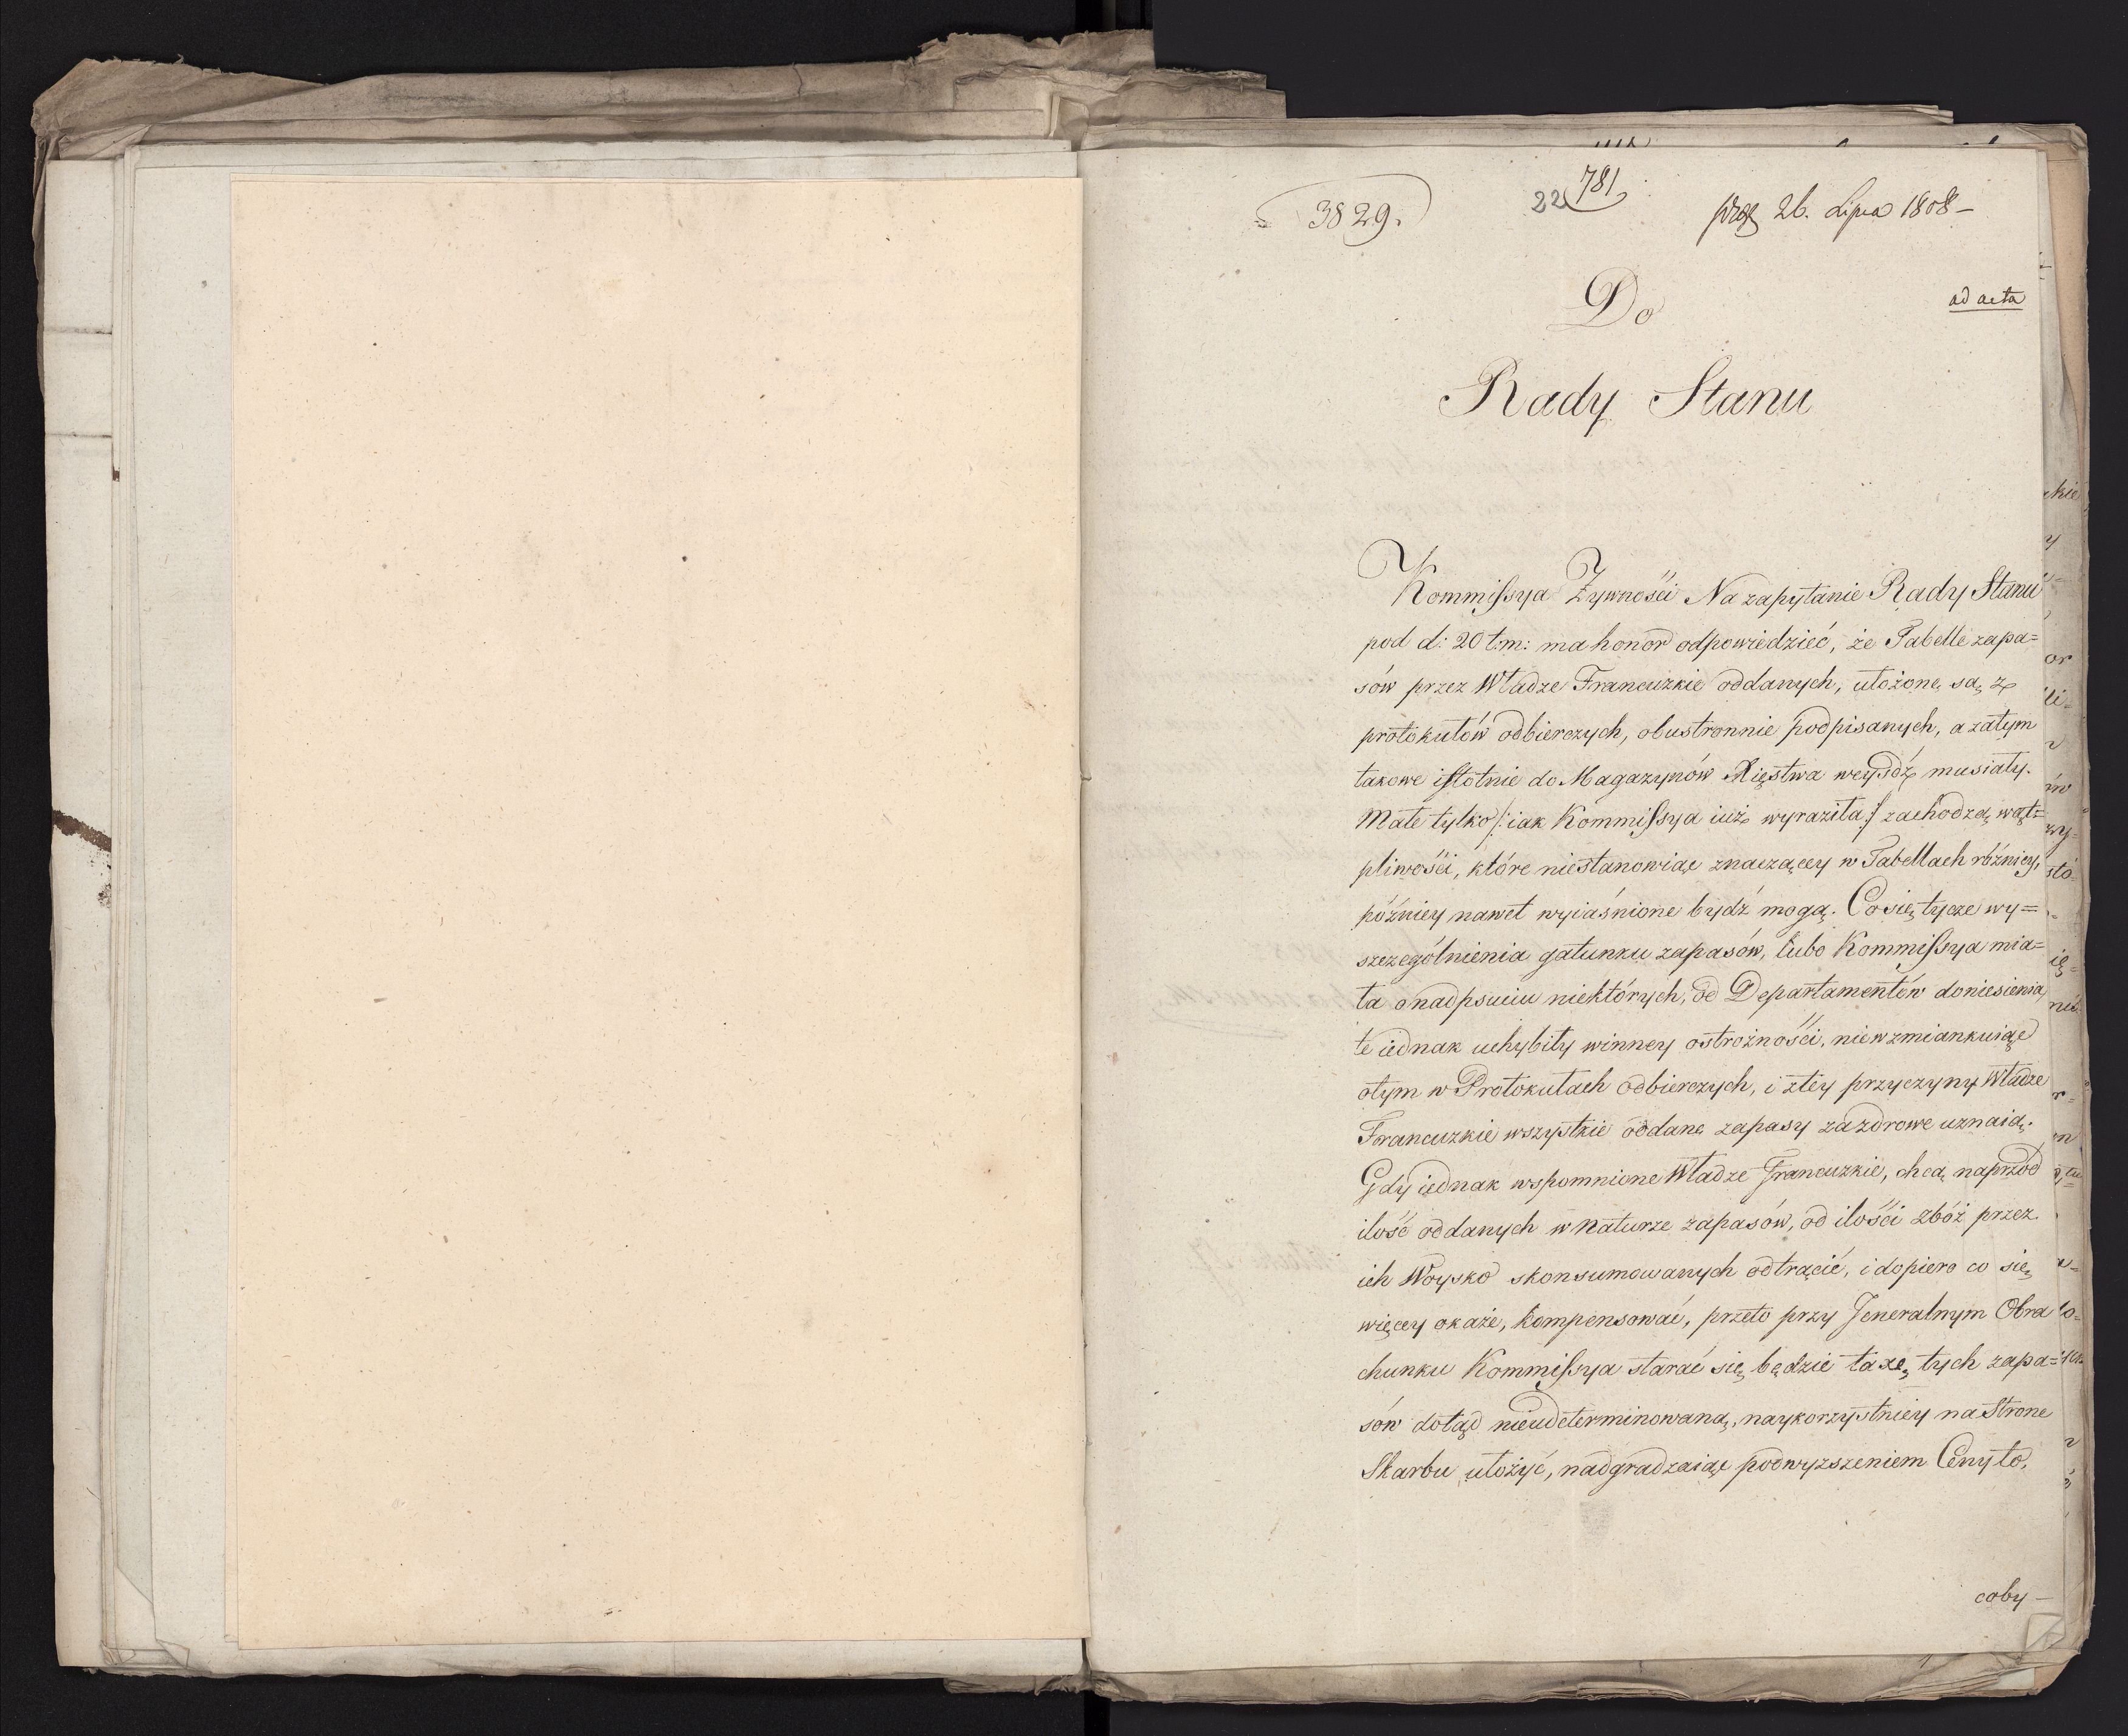 3829.
781
22
26. Lipca 1808 –
ad acta
Do
Rady Stanu
Kommissya Żywności Na zapytanie Rady Stanu
pod d: 20 t:m: ma honor odpowiedzieć, że Tabelle zapa=
sów przez Władze Francuzkie oddanych, ułożone są z
protokułów odbierczych, obustronnie podpisanych, a zatym
takowe istotnie do Magazynów Xięstwa weyśdź musiały.
Małe tylko /: iak Kommissya iuż wyraziła :/ zachodzą wąt=
pliwości, które niestanowiąc znaczącey w Tabellach różnicy,
późniey nawet wyiaśnione bydź mogą. Co się tycze wy=
szczególnienia gatunku zapasów, lubo Kommissya mia=
ła o nadpsuciu niektórych, od Departamentów doniesienia,
te iednak uchybiły winney ostrożności, niewzmiankuiąc
otym w Protokułach odbierczych, i ztéy przyczyny Władze
Francuzkie wszystkie oddane zapasy za zdrowe uznaią.
Gdy iednak wspomnione Władze Francuzkie, chcą naprzód
ilość oddanych w naturze zapasów, od ilości zbóż przez
ich Woysko skonsumowanych odtrącić, i dopiero co się
więcey okaże, kompensować, przeto przy Jeneralnym Obra
chunku Kommissya starać się będzie taxę tych zapa=
sów dotąd nieudeterminowaną, naykorzystniey na Strone
Skarbu ułożyć, nadgradzaiąc podwyższeniem Ceny to,
coby –